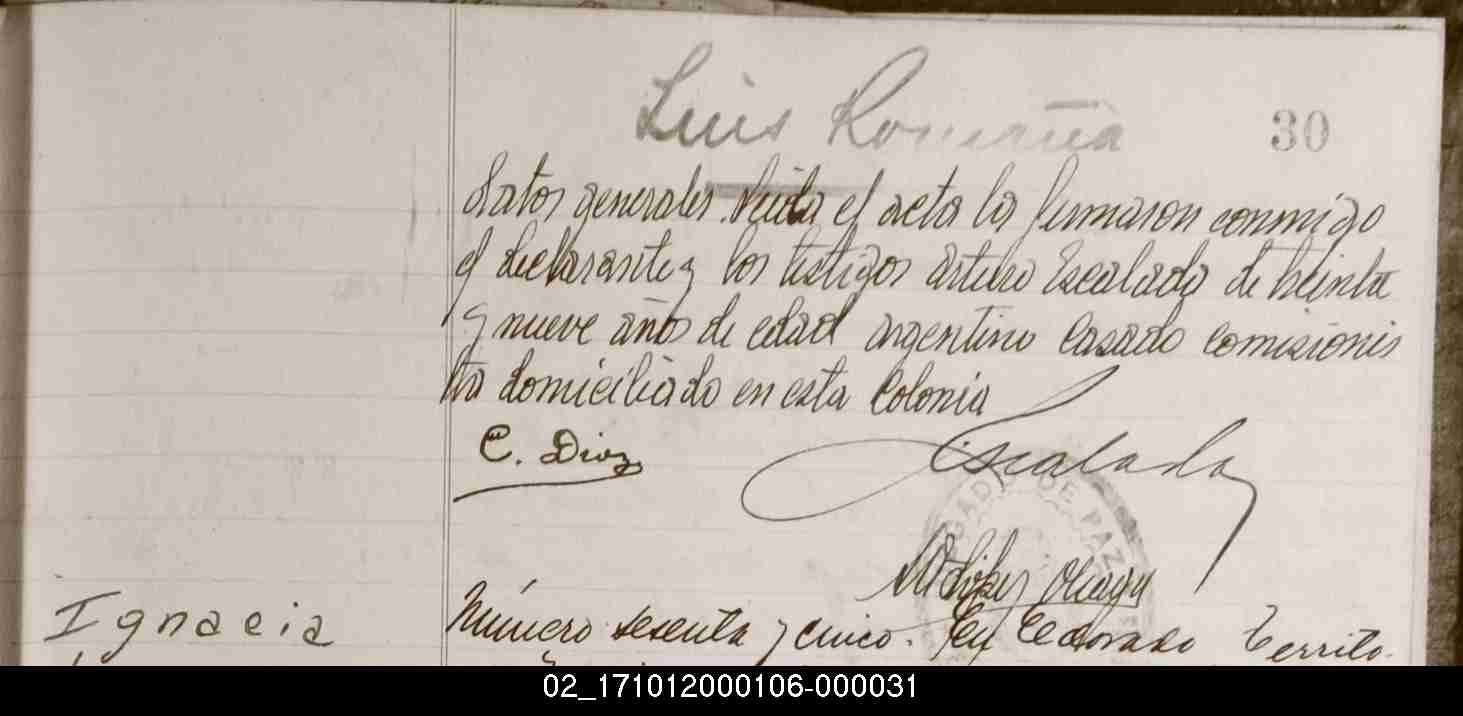 Luis Romaña
30
datos generales. Leida el acta la firmaron conmigo
el declarante y los testigos Arturo Escalada de treinta
y nueve años de edad argentino casado comisionis
ta domiciliado en esta Colonia
C. Diaz
Escalada
JUZGADO DE PAZ
Ignacia
Número sesenta y cinco. En Eldorado Territo-
02_171012000106-000031